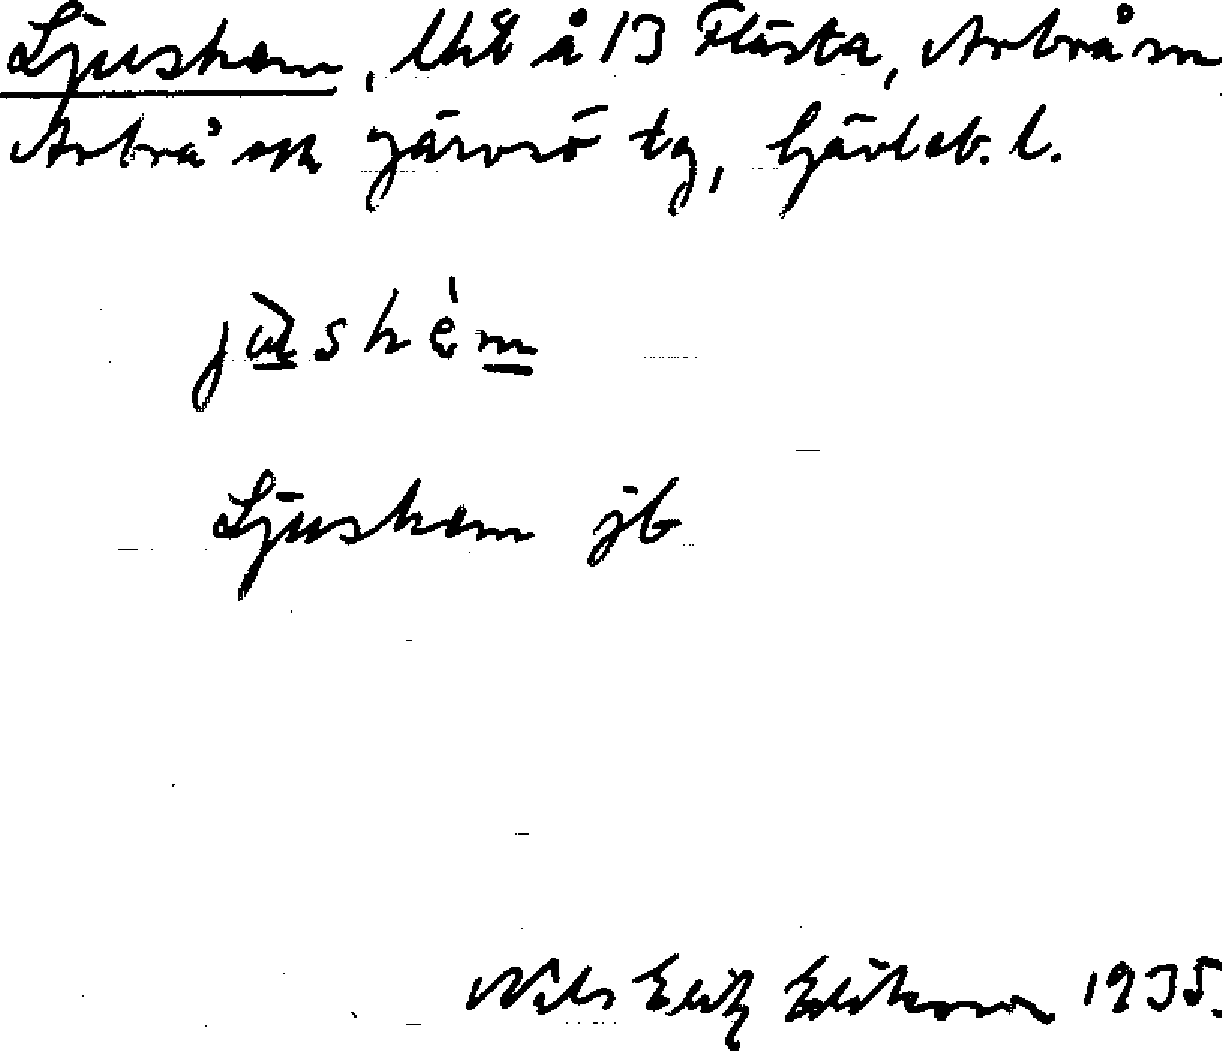 Ljushem, lht å 13 Flästa, Arbrå sn
Arbrå och Järvsö tg, Gävleb. l.
jùshèm
Ljushem jb
Nils Erik Eriksson 1935.